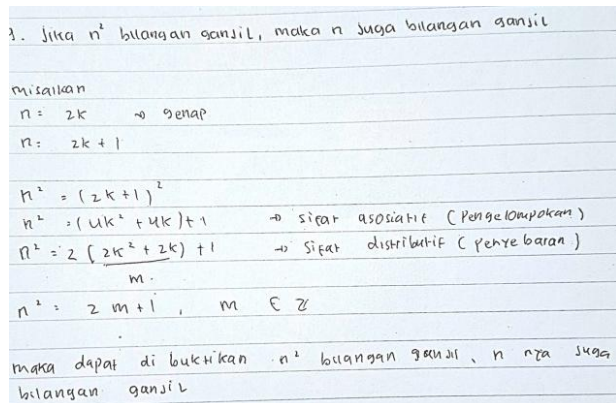 1. Jika n² bilangan ganjil, maka n juga bilangan ganjil
misalkan
n = 2k → genap
n = 2k + 1
n² = (2k+1)²
n² = (4k² + 4k) + 1 → sifat asosiatif (Pengelompokan)
n² = 2 (2k² + 2k) + 1 → sifat distributif (penyebaran)
m.
n² = 2 m + 1 , m ∈ Z
maka dapat di buktikan n² bilangan ganjil, n nya juga
bilangan ganjil